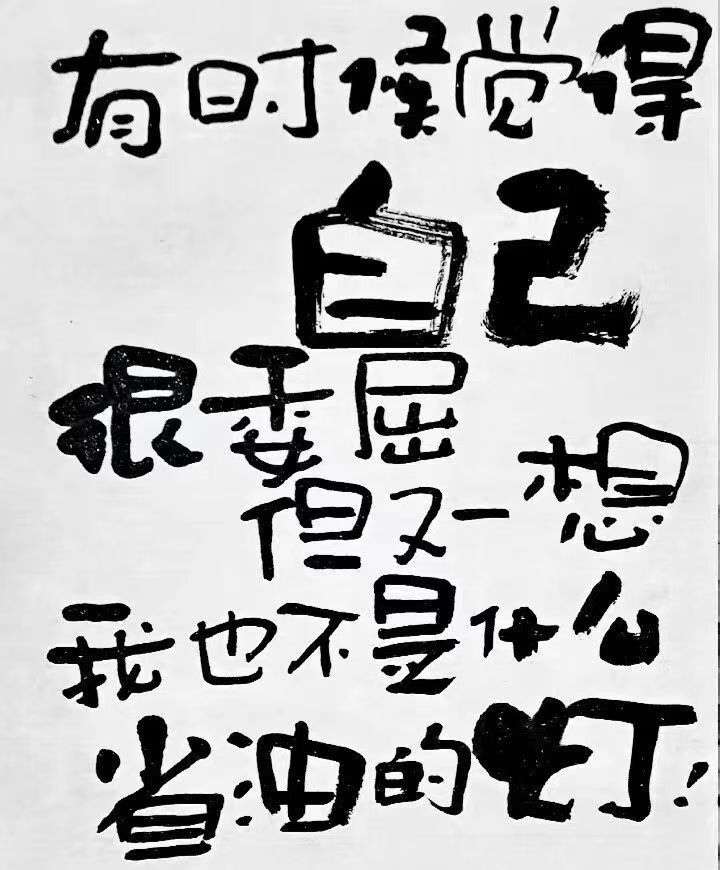 有时候觉得
自己
很委屈
但又一想
我也不是什么
省油的灯!